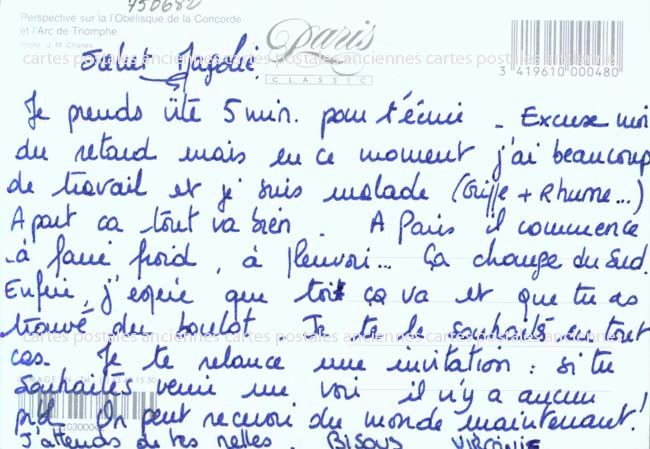 750680
Perspective sur la l'Obélisque de la Concorde
et l'Arc de Triomphe
Photo : J. M. Charles
Paris
CLASSIC
3 419610 000480
cartes postales anciennes cartes postales anciennes cartes postales anciennes
Salut
Je prends vite 5 min. pour t'écrire - Excuse moi
du retard mais en ce moment j'ai beaucoup
de travail et je suis malade (Griffe + Rhume...)
A part ca tout va bien. A Paris il commence
à faire froid, à pleuvoir... Ça change du Sud.
Enfin, j'espère que toi ça va et que tu as
trouvé du boulot. Je te le souhaite en tout
cartes postales anciennes cartes postales anciennes cartes postales anciennes
cas. Je te relance une invitation : si tu
souhaités venir me voir il n'y a aucun
pb. On peut recevoir du monde maintenant!
J'attends de tes nelles. Bisous Virginie